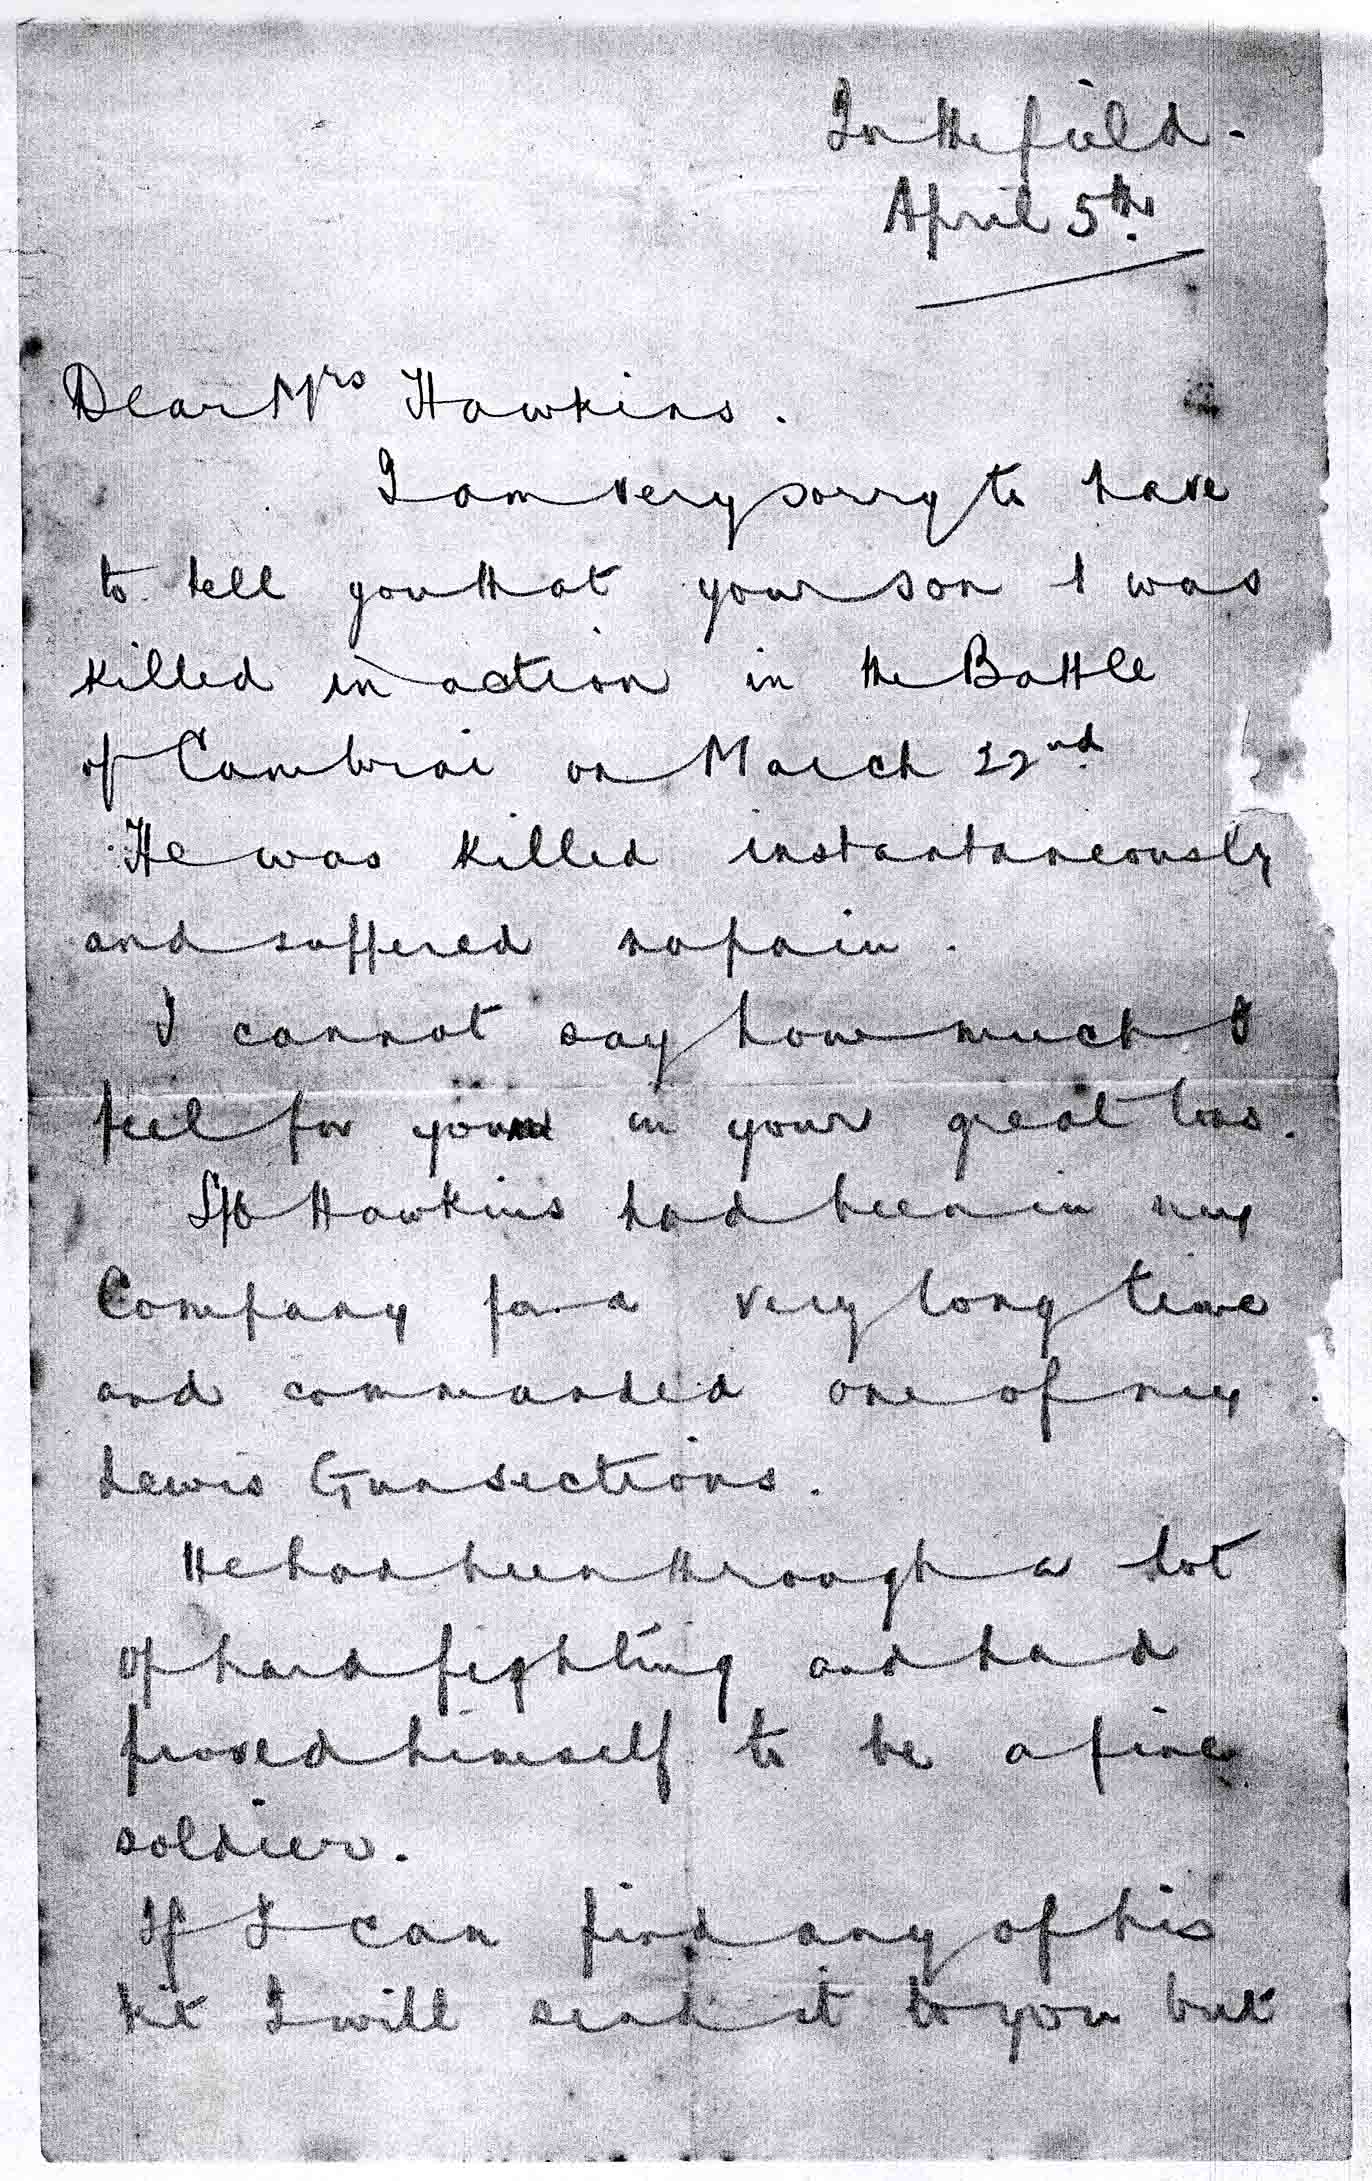 In the field -
April 5th.
Dear Mrs Hawkins.
I am very sorry to have
to tell you that your son was
killed in action in the Battle
of Cambrai on March 22nd.
He was killed instantaneously
and suffered no pain.
I cannot say how much I
feel for you in your great loss.
Hawkins had been in my
Company for a very long time
and commanded one of my
Lewis Gun sections.
He had been through a lot
of hard fighting and had
proved himself to be a fine
soldier.
If I can find any of his
kit I will send it to you but